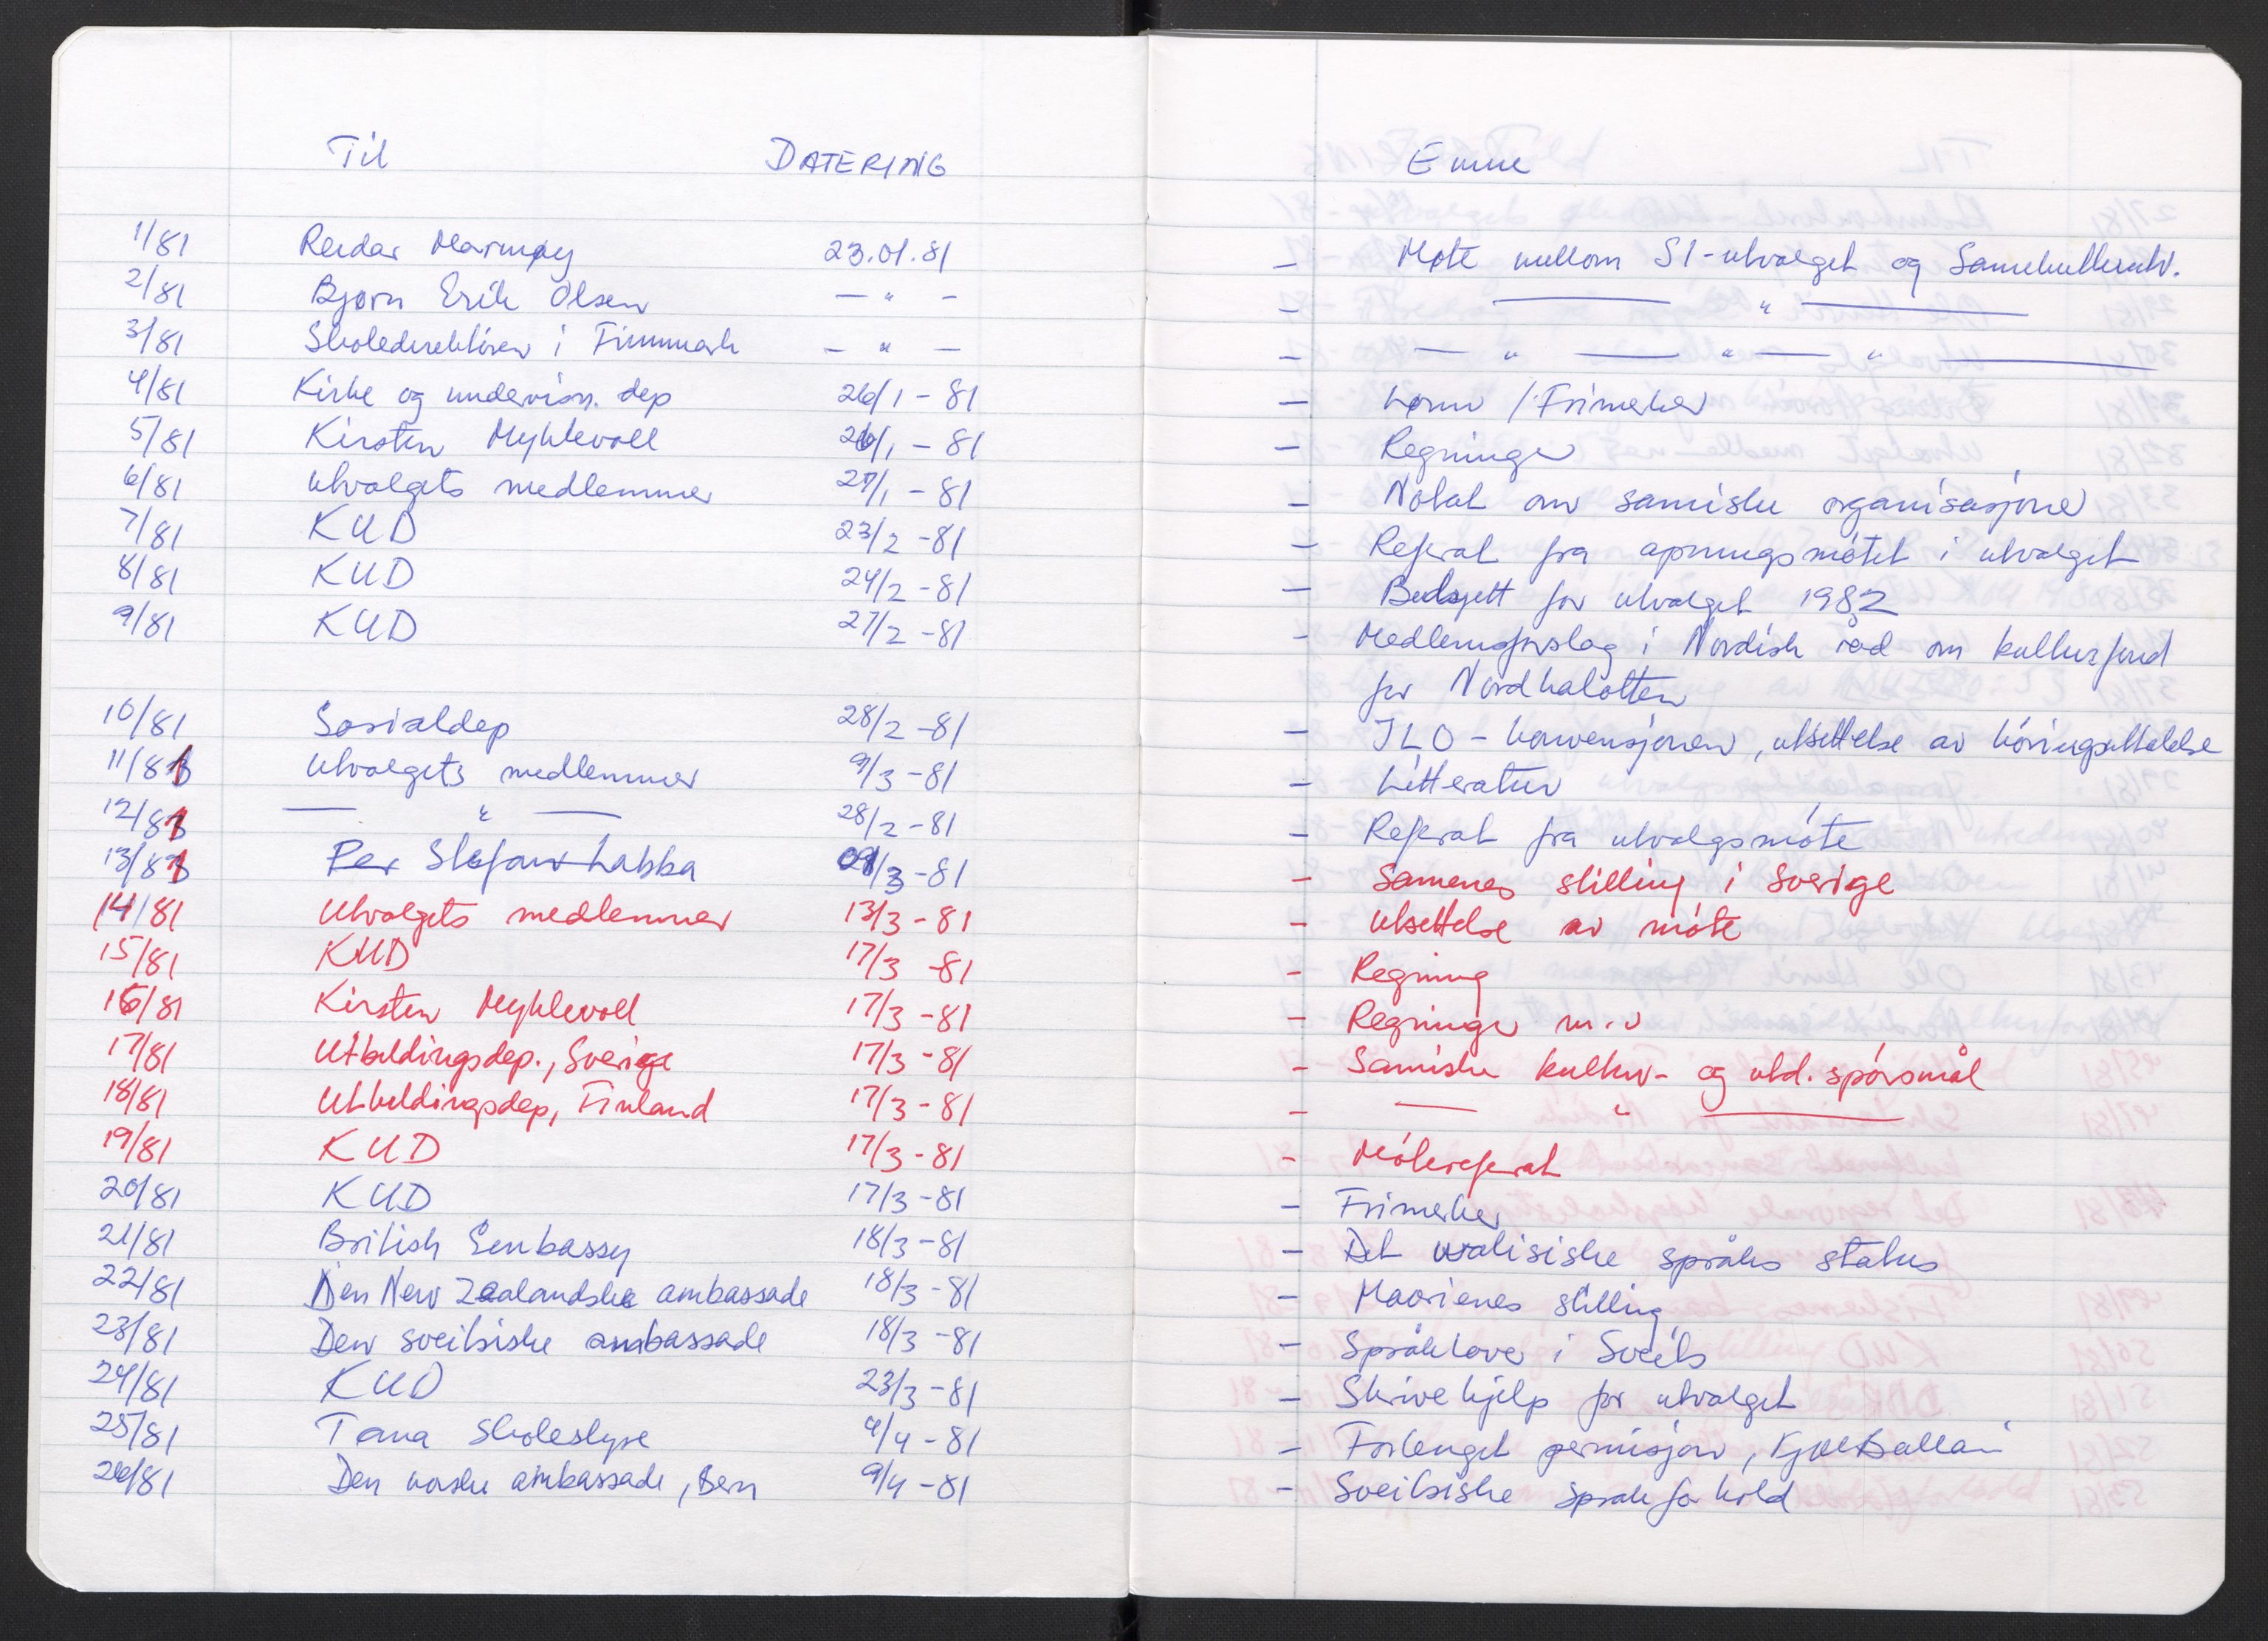 Til DATERING Emne
1/81 Reidar Marmøy 23.01.81 – Møte mellom SI-utvalget og Samekulturutv.
2/81 Bjørn Erik Olsen — " – – — " —
3/81 Skoledirektören i Finnmark – " – – — " — " — " —
4/81 Kirke og undervisn. dep 26/1 – 81 – Lønn / Frimerker
5/81 Kirsten Myklevoll 26/1 – 81 – Regninger
6/81 Utvalgets medlemmer 27/1 – 81 – Notat om samiske organisasjoner
7/81 KUD 23/2 -81 – Referat fra åpningsmötet i utvalget
8/81 KUD 24/2 -81 – Budsjett for utvalget 1982
9/81 KUD 27/2 -81 – Medlemsforslag i Nordisk råd om kulturfond
for Nordkalotten
10/81 Sosialdep 28/2 -81 – ILO - konvensjonen, utsettelse av höringsuttalelse
11/81 Utvalgets medlemmer 9/3 -81 – Litteratur
12/81 — " — 28/2 -81 – Referat fra utvalgsmöte
13/81 Per Stefan Labba 09/3 -81 – Samenes stilling i Sverige
14/81 Utvalgets medlemmer 13/3 - 81 – Utsettelse av möte
15/81 KUD 17/3 -81 – Regning
16/81 Kirsten Myklevoll 17/3 -81 – Regninger m.v
17/81 Utbildingsdep., Sverige 17/3 - 81 – Samiske kultur- og utd. spörsmål
18/81 Utbildingsdep, Finland 17/3 - 81 – — " —
19/81 KUD 17/3 - 81 – Mötereferat
20/81 KUD 17/3 -81 – Frimerker
21/81 British Embassy 18/3 -81 – Det walisiske språks status
22/81 Den New Zealandske ambassade 18/3 -81 – Maorienes stilling
23/81 Den sveitsiske ambassade 18/3 -81 – Språklover i Sveits
24/81 KUD 23/3 -81 – Skrivehjelp for utvalget
25/81 Tana Skolestyre 9/4 - 81 – Forlenget permisjon,
26/81 Den norske ambassade, Bern 9/4 -81 – Sveitsiske språkforhold